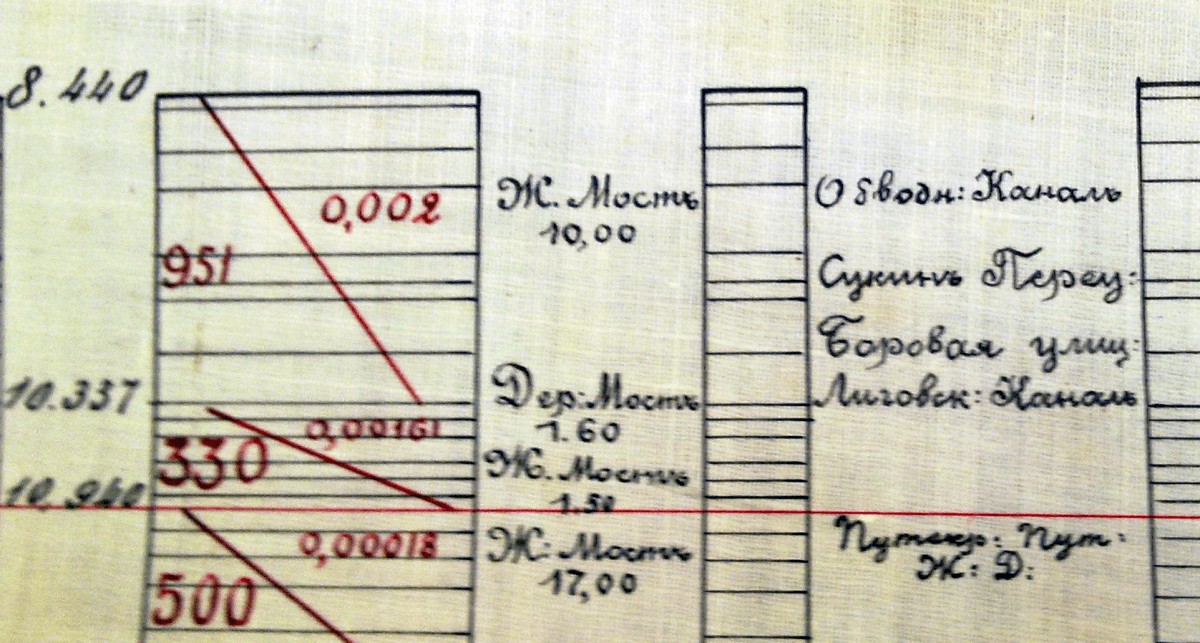 8.440
0,002
Ж. Мостъ
10,00
Обводн: Каналъ
951
Сукинъ Перец:
Боровая улиц:
10.337
Дер: Мостъ
1.60
Лиговск: Каналъ
0,00161
330
Ж. Мостъ
1.50
10,940
0,00018
Ж: Мостъ
17,00
Пут:
Ж: Д:
500